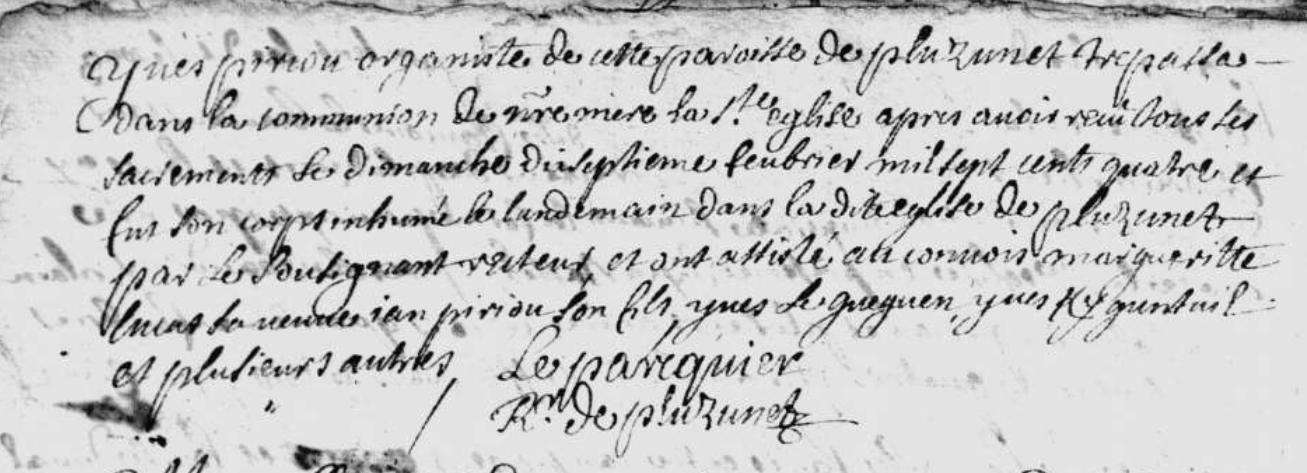 yves piriou organiste de cette paroisse de pluzunet trepassa
dans la communion de n̄re mere la s.te eglise apres avoir receu tous les
sacrements le dimanche dixseptieme feubvrier mil sept cents quatre et
fut son corps inhumé le landemain dans la dite eglise de pluzunet
par le soubsignant recteur, et ont assisté au convoi margueritte
lucas sa veuve ian piriou son fils, yves le gueguen, yves
et plusieurs autres Le parcquier
R.r de pluzunet